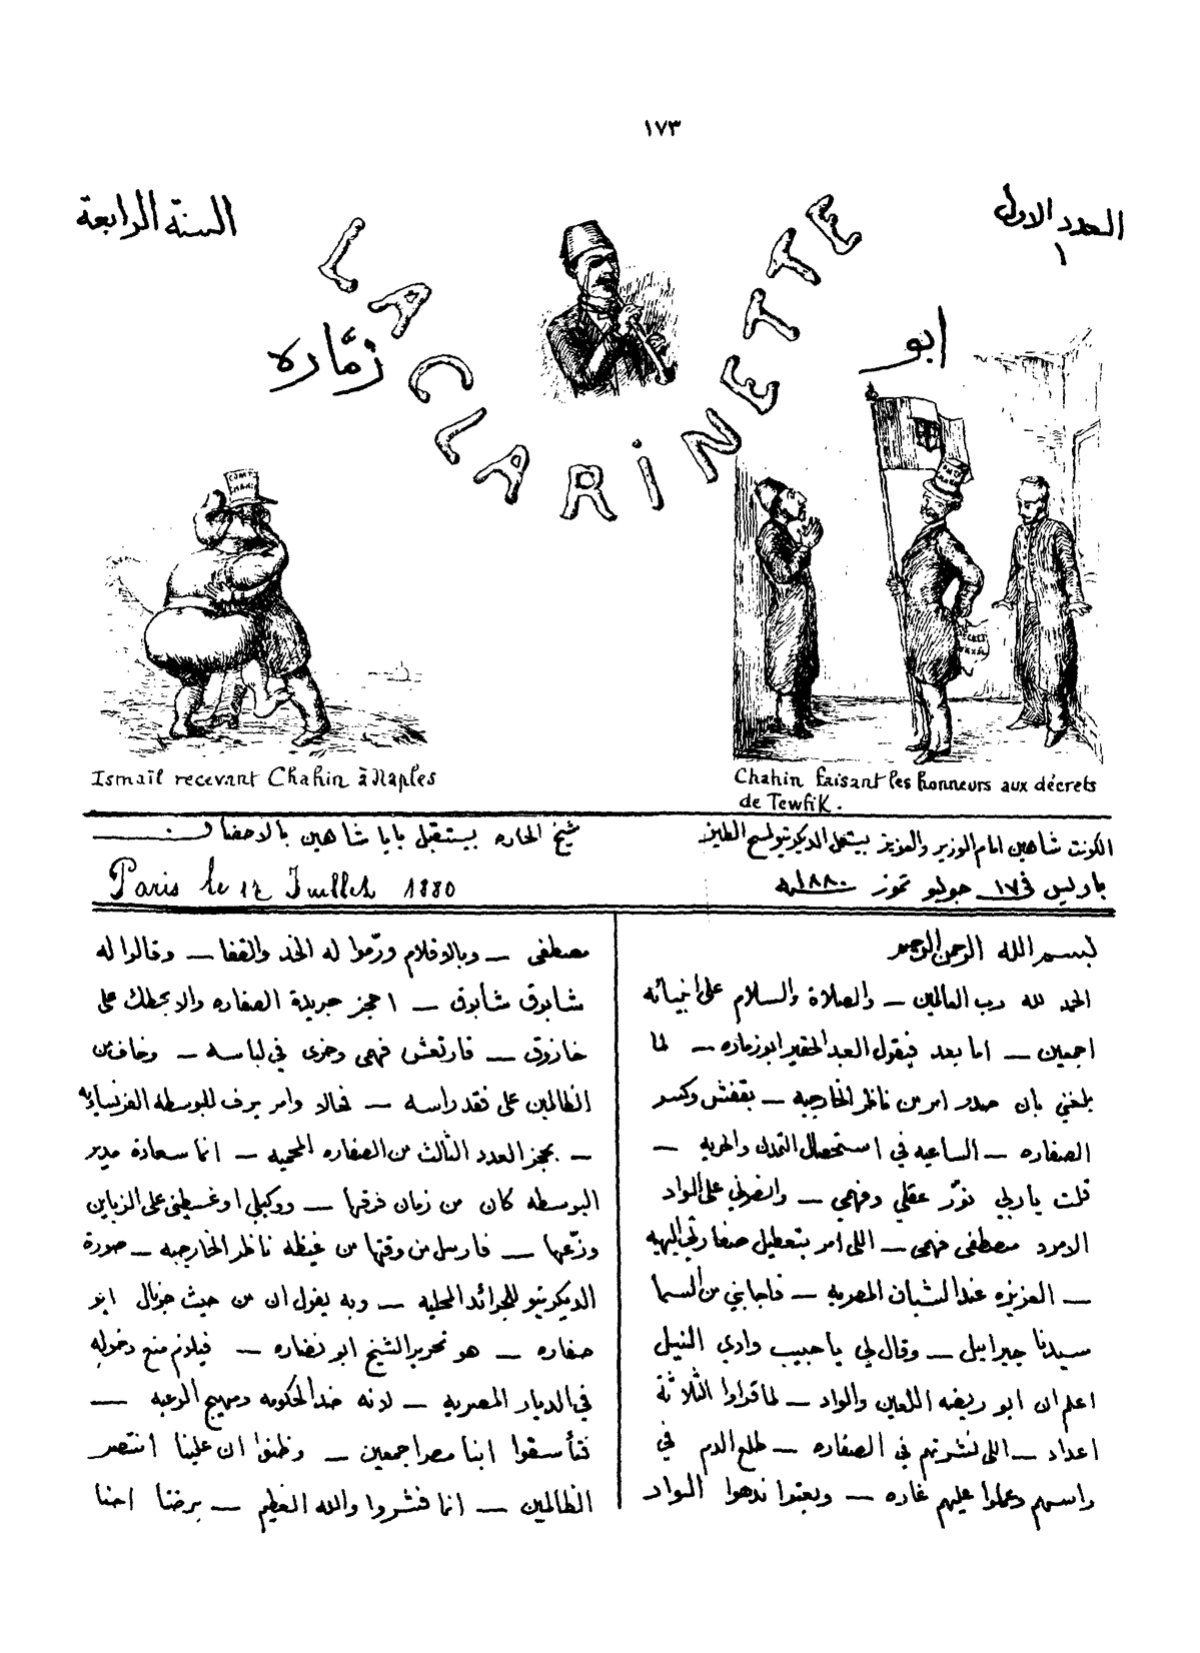 ١٧٣
العدد الاول
١
السنة الرابعة
LA CLARINETTE
ابو
زمّاره
COMTE
Ismaïl recevant Chahin à Naples
Chahin faisant les honneurs aux décrets
de Tewfik.
الكونت شاهين امام الوزير والعزيز يستعمل الديكريتو لمسح الطيز
شيخ الحاره يستقبل بابا شاهين بالاحضان
باريس في ١٧ جوليو تموز سنة ١٨٨٠
Paris le 17 Juillet 1880
بسم الله الرحمن الرحيم
الحمد لله رب العالمين — والصلاة والسلام على انبيائه
اجمعين — اما بعد فيقول العبد الحقير ابو زماره — لما
بلغني بان صدر امر من ناظر الخارجيه — بقفش وكسر
الصفاره — الساعيه في استحصال التمدن والحريه —
قلت يا ربي نوّر عقلي وفهمي — وانصرني على الواد
الامرد مصطفى فهمي — اللي امر بتعطيل صفارتي البهيه
— العزيزه عند الشبان المصريه — فاجابني من السما
سيدنا جبرائيل — وقال لي يا حبيب وادي النيل
اعلم ان ابو ريضه اللعين والواد — لما قراوا الثلاثة
اعداد — اللي نشرتهم في الصفاره — طلع الدم في
راسهم وعملوا عليهم غاره — وبعتوا ندهوا الواد
مصطفى — وبالاقلام ورّموا له الخد والقفا — وقالوا له
شابوق شابوق — احجز جريدة الصفاره والا نحطك على
خازوق — فارتعش فهمي وخزى في لباسه — وخاف من
الظالمين على فقد راسه — فحالا وامر يرف للبوسطه الفرنساويه
— بحجز العدد الثالث من الصفاره المحميه — انما سعادة مدير
البوسطه كان من زمان فرقها — ووكيلي اوغسطين على الزباين
وزّعها — فارسل من وقتها من غيظه ناظر الخارجيه — صورة
الديكريتو للجرائد المحليه — وبه يقول ان من حيث جرنال ابو
صفاره — هو تحرير الشيخ ابو نضاره — فيلزم منع دخوله
في الديار المصريه — لانه ضد الحكومه ومهيج الرعيه —
فتأسفوا ابنا مصر اجمعين — وظنوا ان علينا انتصر
الظالمين — انما فشروا والله العظيم — برضنا احنا